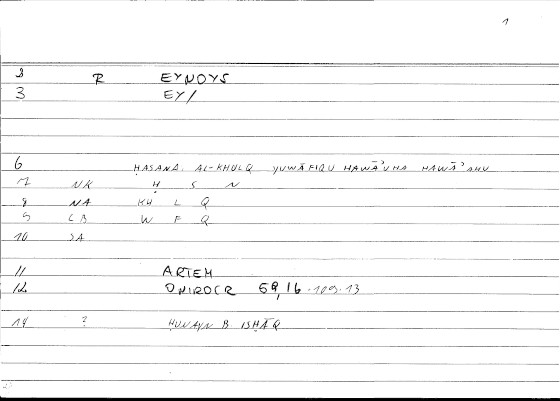 1
2 R EYNOYS
3 EY/
6 ḤASANA. AL-KHULQ YUWĀFIQU HAWĀ'UHA HAWĀ'AHU
7 NK Ḥ S N
8 NA KH L Q
9 CB W F Q
10 SA
11 ARTEM
12 ONIROCR 59,16-109.13
14 ? ḤUNAYN B ISḤĀQ